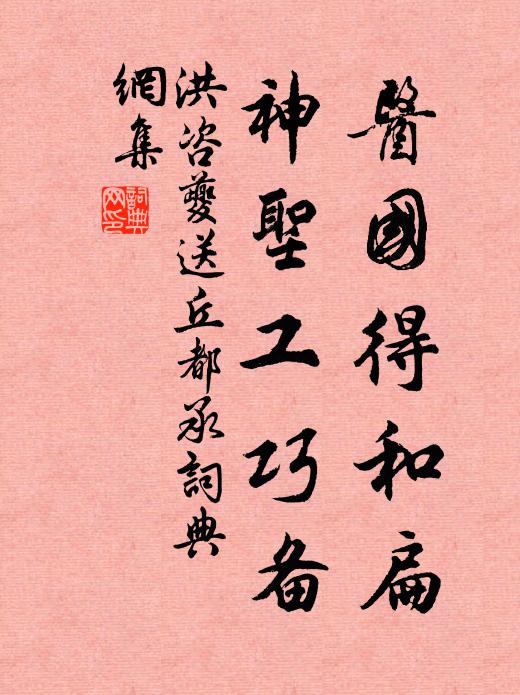 醫國得和扁
神聖工巧备
洪咨夔送丘都承詞典
網集
詞典
网印